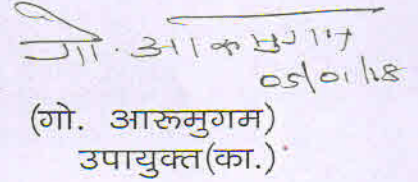 गो. आरुमुगम
05/01/18
(गो. आरुमुगम)
उपायुक्त(का.)